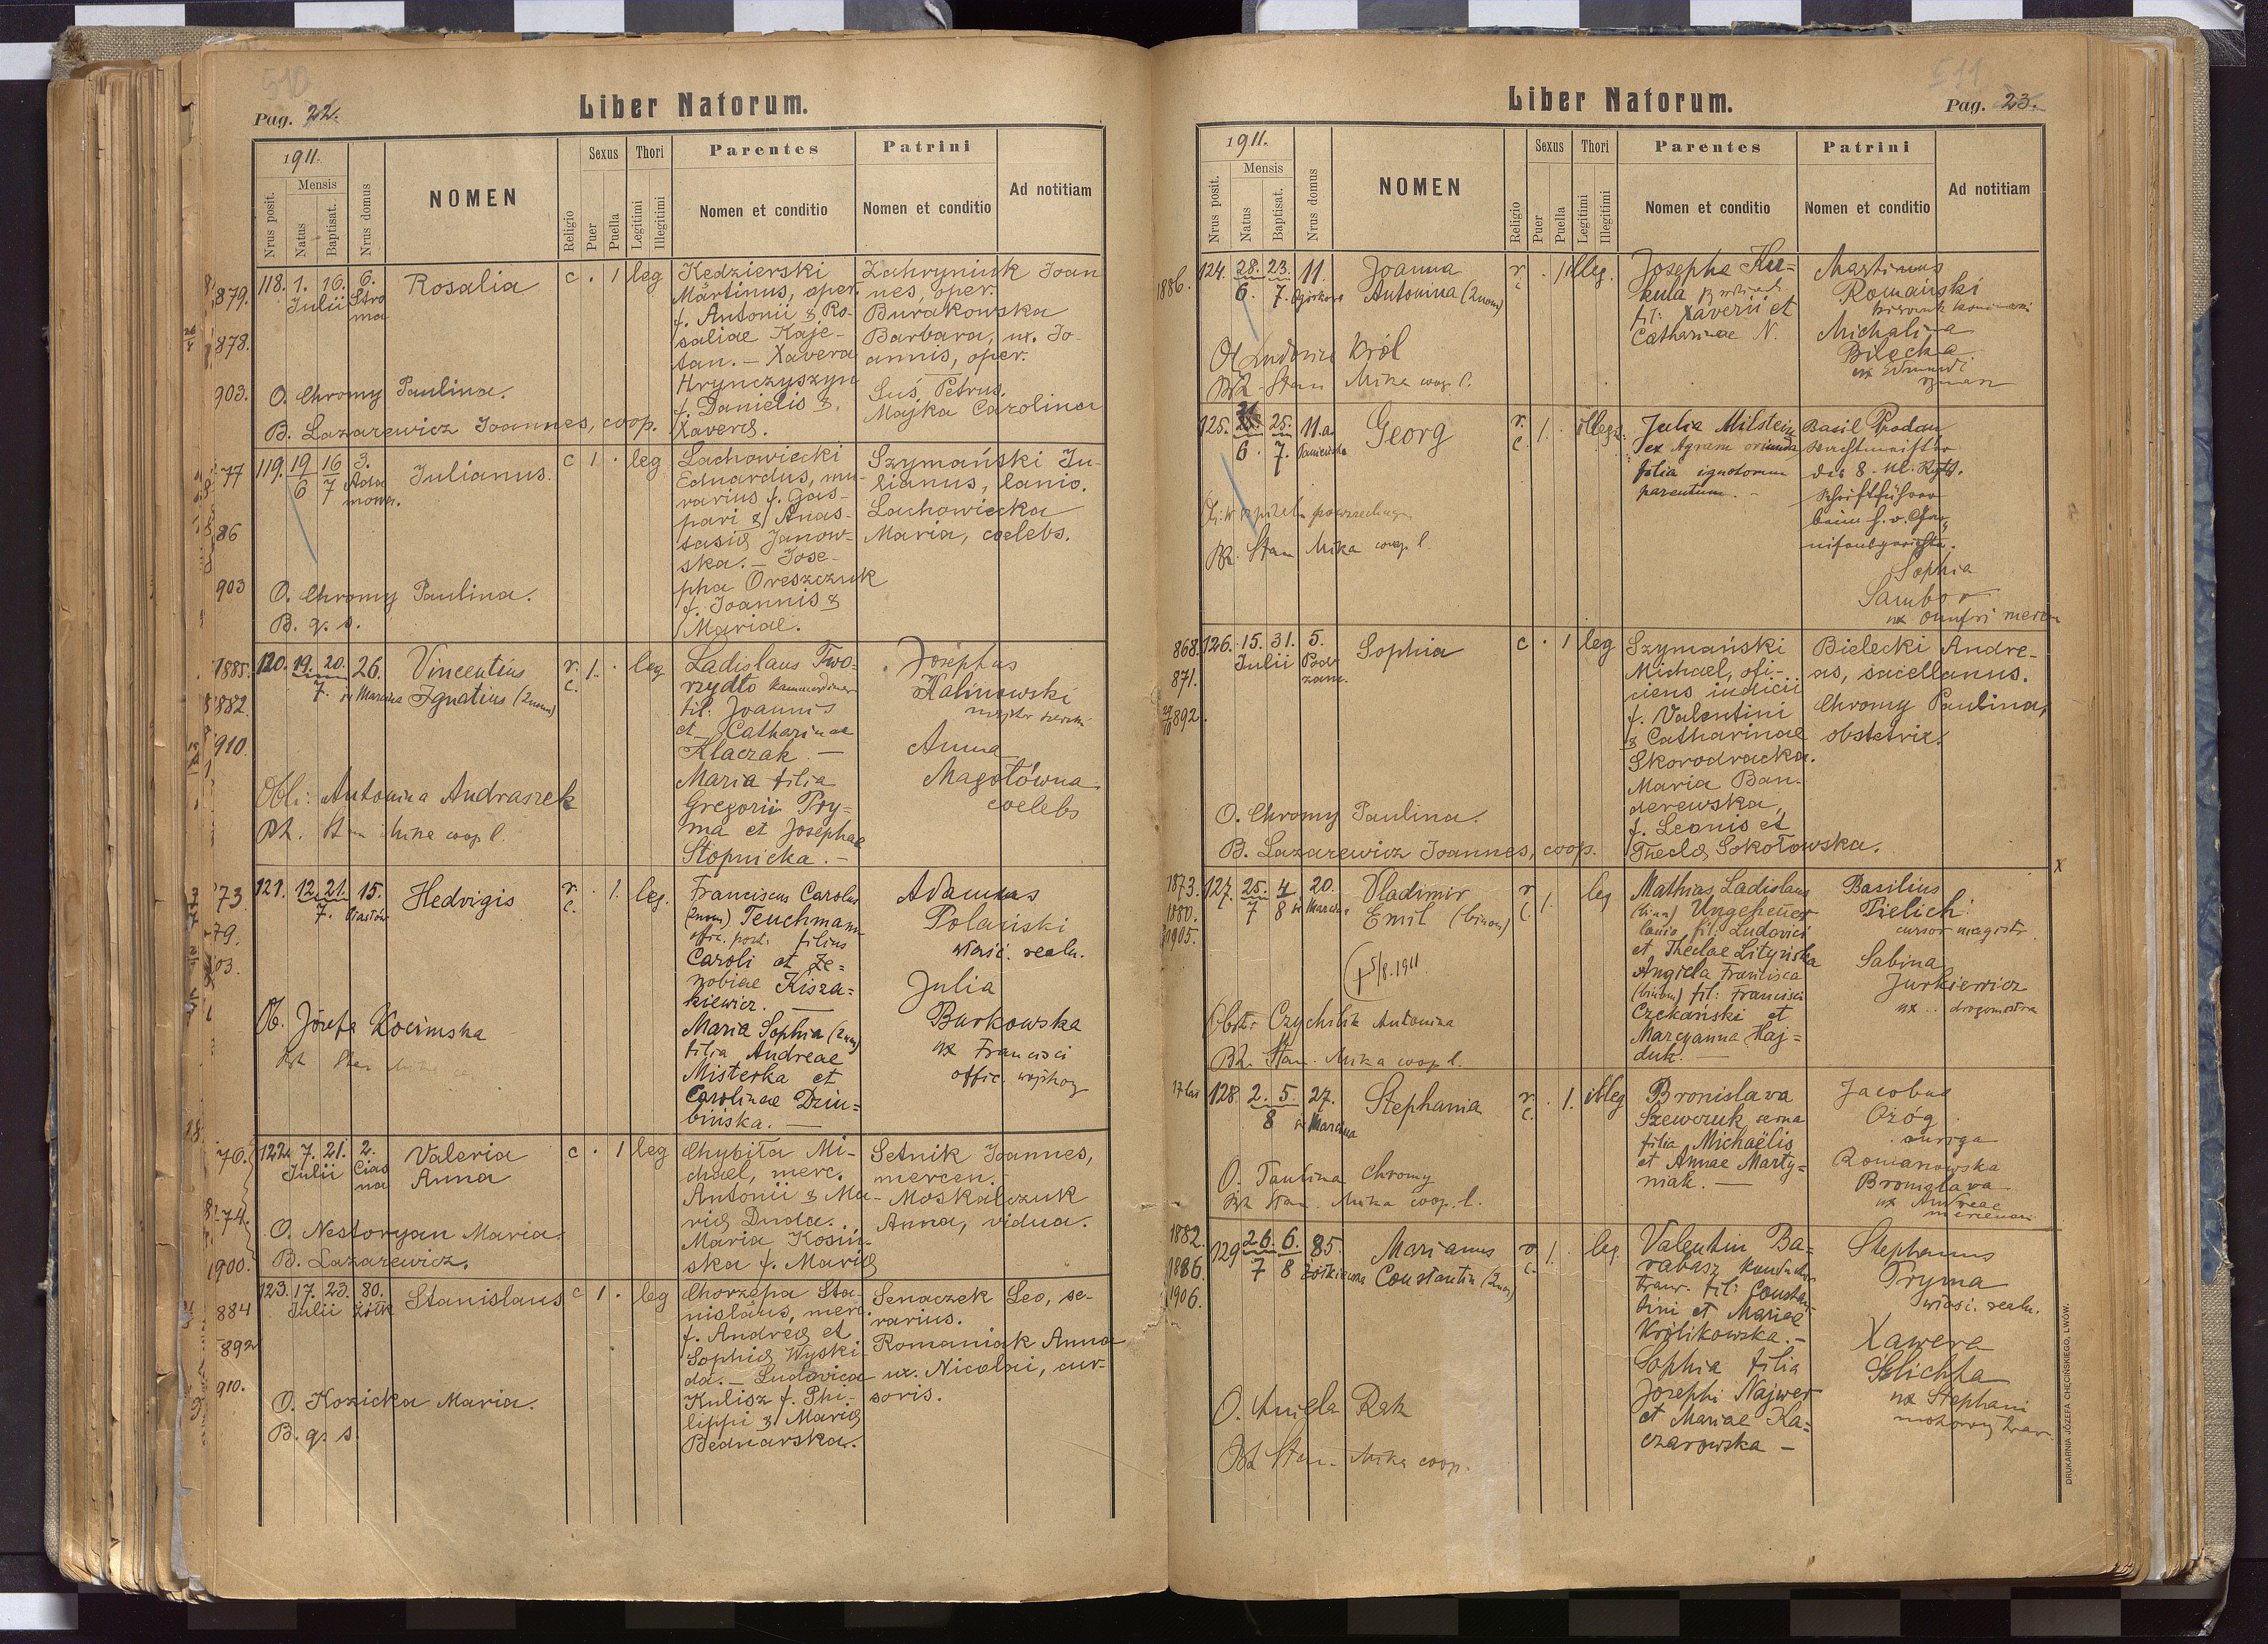 510
Pag. 22.
Liber Natorum.
1911.
Nrus posit.
Mensis
Natus
Baptisat.
Nrus domus
NOMEN
Religio
Sexus
Puer
Puella
Thori
Legitimi
Illegitimi
Parentes
Nomen et conditio
Patrini
Nomen et conditio
Ad notitiam
879.
878.
903.
118. 1. 16. 6.
Julii Stro
ma
Rosalia
c . 1 leg
Kędzierski
Martinus, oper.
f. Antonii & Ro-
saliae Kaje-
tan. - Xavera
Hrynczyszyn
f. Danielis &
Xaverae.
Zahryniuk Joan
nes, oper.
Burakowska
Barbara, ux. Jo-
annis, oper.
Suś Petrus.
Majka Carolina
O. Chromy Paulina.
B. Lazarewicz Joannes, coop.
77
86
903
119. 19 16 3.
6 7
Julianus.
c 1 . leg
Lachowiecki
Eduardus, mu-
rarius f. Gas-
pari & Anas-
tasiae Janow-
ska. - Jose-
pha Oreszczuk
f. Joannis &
Mariae.
Szymański Ju-
lianus, lanio.
Lachowiecka
Maria, coelebs.
O. Chromy Paulina.
B. q. s.
1885.
1882.
910.
120. 19. 20. 26.
7. s. Marcina
Vincentius
Ignatius (2nom)
r. c. 1. . leg
Ladislaus Two-
rzydło
fil: Joannis
et Catharinae
Klaczak -
Maria filia
Gregorii Pry-
ma et Josephae
Stopnicka. -
Josephus
Kalinowski
Anna
Magołówna
coelebs
Obst: Antonina Andraszek
Bt. Stan Mika coop l.
73
79.
03.
121. 12. 21. 15.
7. Piastów
Hedvigis
r. c. . 1. leg.
Franciscus Carolus
(2nom) Teuchmann
offic. post. filius
Caroli et Ze-
nobiae Kisza-
kiewicz. -
Maria Sophia (2nom)
filia Andreae
Misterka et
Carolinae Dziu-
bińska. -
Adamus
Polański
właśc. realn.
Julia
Burkowska
ux Francisci
offic.
Ob. Józefa Kocimska
76.
74.
1900.
122. 7. 21. 2.
Julii Cias
na
Valeria
Anna
c . 1 leg
Chybiła Mi-
chael, merc.
Antonii & Ma-
riae Duda.
Maria Kosiń-
ska f. Mariae
Setnik Joannes,
mercen. -
Moskalczuk
Anna, vidua.
O. Nestoryan Maria.
B. Lazarewicz.
884
892
910.
123. 17. 23. 80.
Julii Żółk
Stanislaus
c 1 . leg
Chorzępa Sta-
nislaus, merc.
f. Andreae et
Sophiae Wyski-
da. - Ludovica
Kulisz f. Phi-
lippi & Mariae
Bednarska.
Senaczek Leo, se-
rarius.
Romaniak Anna
ux. Nicolai, cur-
soris.
O. Kozicka Maria.
B. q. s.
511
Liber Natorum.
Pag. 23.
1911.
Nrus posit.
Mensis
Natus
Baptisat.
Nrus domus
NOMEN
Religio
Sexus
Puer
Puella
Thori
Legitimi
Illegitimi
Parentes
Nomen et conditio
Patrini
Nomen et conditio
Ad notitiam
1886.
124. 28. 23. 11.
6. 7.
Joanna
Antonina (2nom)
r. c. . 1 illeg.
Josepha Ku-
kula
fil: Xaverii et
Catharinae N.
Martinus
Romański
Michalina
Bilecka
ux Edmundi
Ob Ludovica Król
Bt. Stan Mika coop l.
125. 21 25. 11.a.
6. 7. Janowska
Georg
r. c. 1. . illeg.
Julia Milstein
ex Agram oriunda
filia ignotorum
parentum. -
Basil Prodan
Wachtmeister
des 8. Ul. Rgts.
Schriftführer
beim
Sophia
Sambor
ux Onufri merc
w szpitalu powszechnym
Bt. Stan Mika coop l.
868.
871.
892.
126. 15. 31. 5.
Julii Pod
zam.
Sophia
c . 1 leg
Szymański
Michael, ofi-
ciens iudicii
f. Valentini
& Catharinae
Skorodracka.
Maria Ban-
derewska,
f. Leonis et
Theclae Sokołowska.
Bielecki Andre-
as, sacellanus.
Chromy Paulina,
obstetrix.
O. Chromy Paulina.
B. Lazarewicz Joannes, coop.
x
1873.
1880.
1905.
127. 25. 4 20.
7 8 s Marcina
Vladimir
Emil (binom)
† 5/8. 1911.
r c. 1. leg
Mathias Ladislaus
(binom) Ungeheuer
lanio fil: Ludovici
et Theclae Lityńska
Angela Francisca
(binom) fil: Francisci
Czekański et
Marcyanna Haj-
duk. -
Basilius
Pielich
cursor magistr.
Sabina
Jurkiewicz
ux
Obst: Czychilik Antonina
Bt. Stan. Mika coop l.
128. 2. 5. 27.
8 s Marcina
Stephania
r. c. . 1. illeg
Bronislava
Szewczuk serva
filia Michaëlis
et Annae Marty-
niak. -
Jacobus
Ożóg
auriga
Romanowska
Bronislava
ux Andreae
mercenarii
O. Paulina Chromy
Bt Stan. Mika coop. l.
1882.
1886.
1906.
129 26. 6. 85.
7 8 Żółkiewska
Marianus
Constantin (2nom)
r. c. 1. . leg.
Valentin Ba-
rabasz konduktor
tramw. fil: Constan-
tini et Mariae
Królikowska. -
Sophia filia
Josephi Najwer
et Mariae Ka-
czarowska -
Stephanus
Pryma
właśc. realn.
Xawera
Glichta
ux Stephani
motorowy tram.
O. Aniela Rak
Bt Stan. Mika coop.
DRUKARNIA JÓZEFA CHĘCIŃSKIEGO, LWÓW.